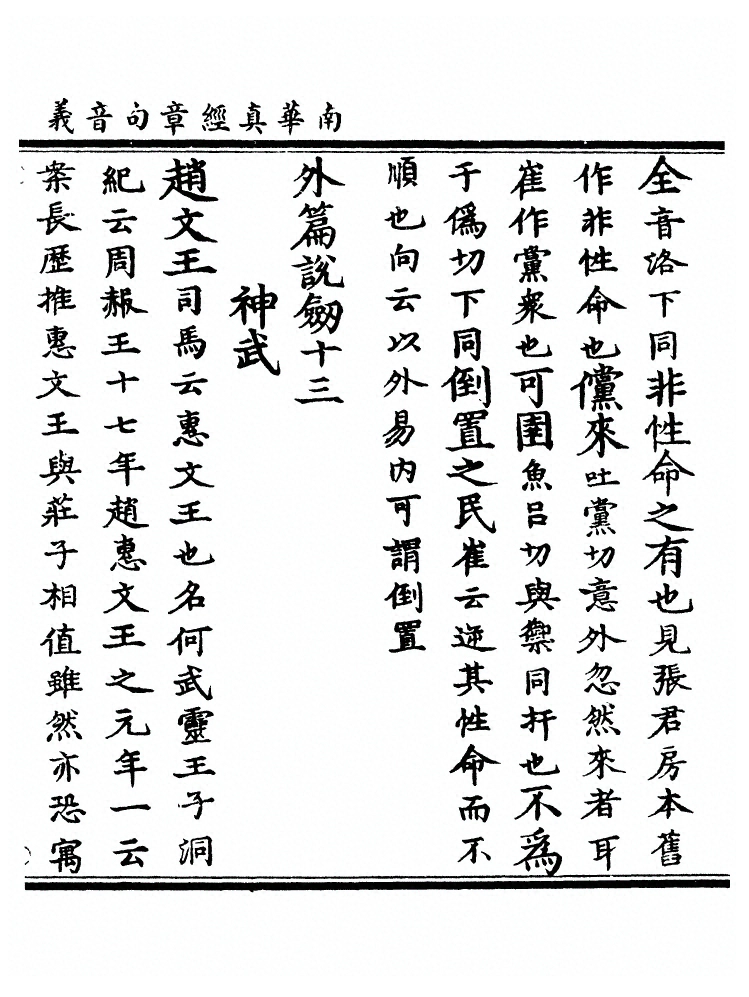 南華真經章句音義
全音洛下同非性命之有也見張君房本舊
作非性命也儻來吐黨切意外忽然來者耳
崔作黨衆也可圉魚呂切與禦同扞也不為
于偽切下同倒置之民崔云逆其性命而不
順也向云以外易内可謂倒置
外篇說劒十三
神武
趙文王司馬云惠文王也名何武靈王子洞
紀云周赧王十七年趙惠文王之元年一云
案長歷推惠文王與莊子相值雖然亦恐寓